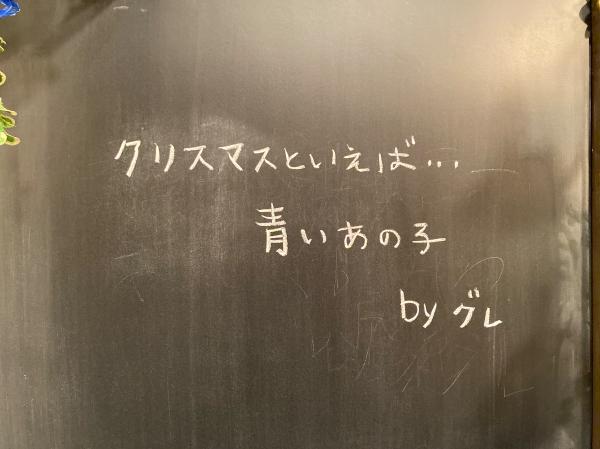 クリスマスといえば...
青いあの子
by グレ